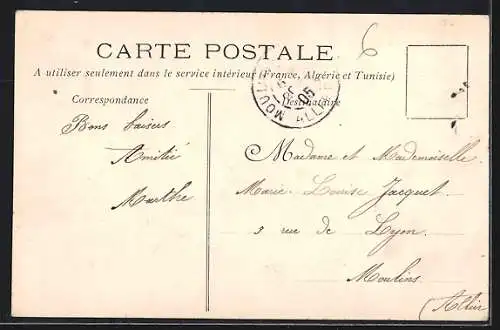 6
CARTE POSTALE
A utiliser seulement dans le service intérieur (France, Algérie et Tunisie)
Correspondance
Destinataire
MOUL 05 ALLIER
Bons baisers
Amitié
Marthe
Madame et Mademoiselle
Marie Louise Jacquet
5 rue de Lyon.
Moulins
(Allier